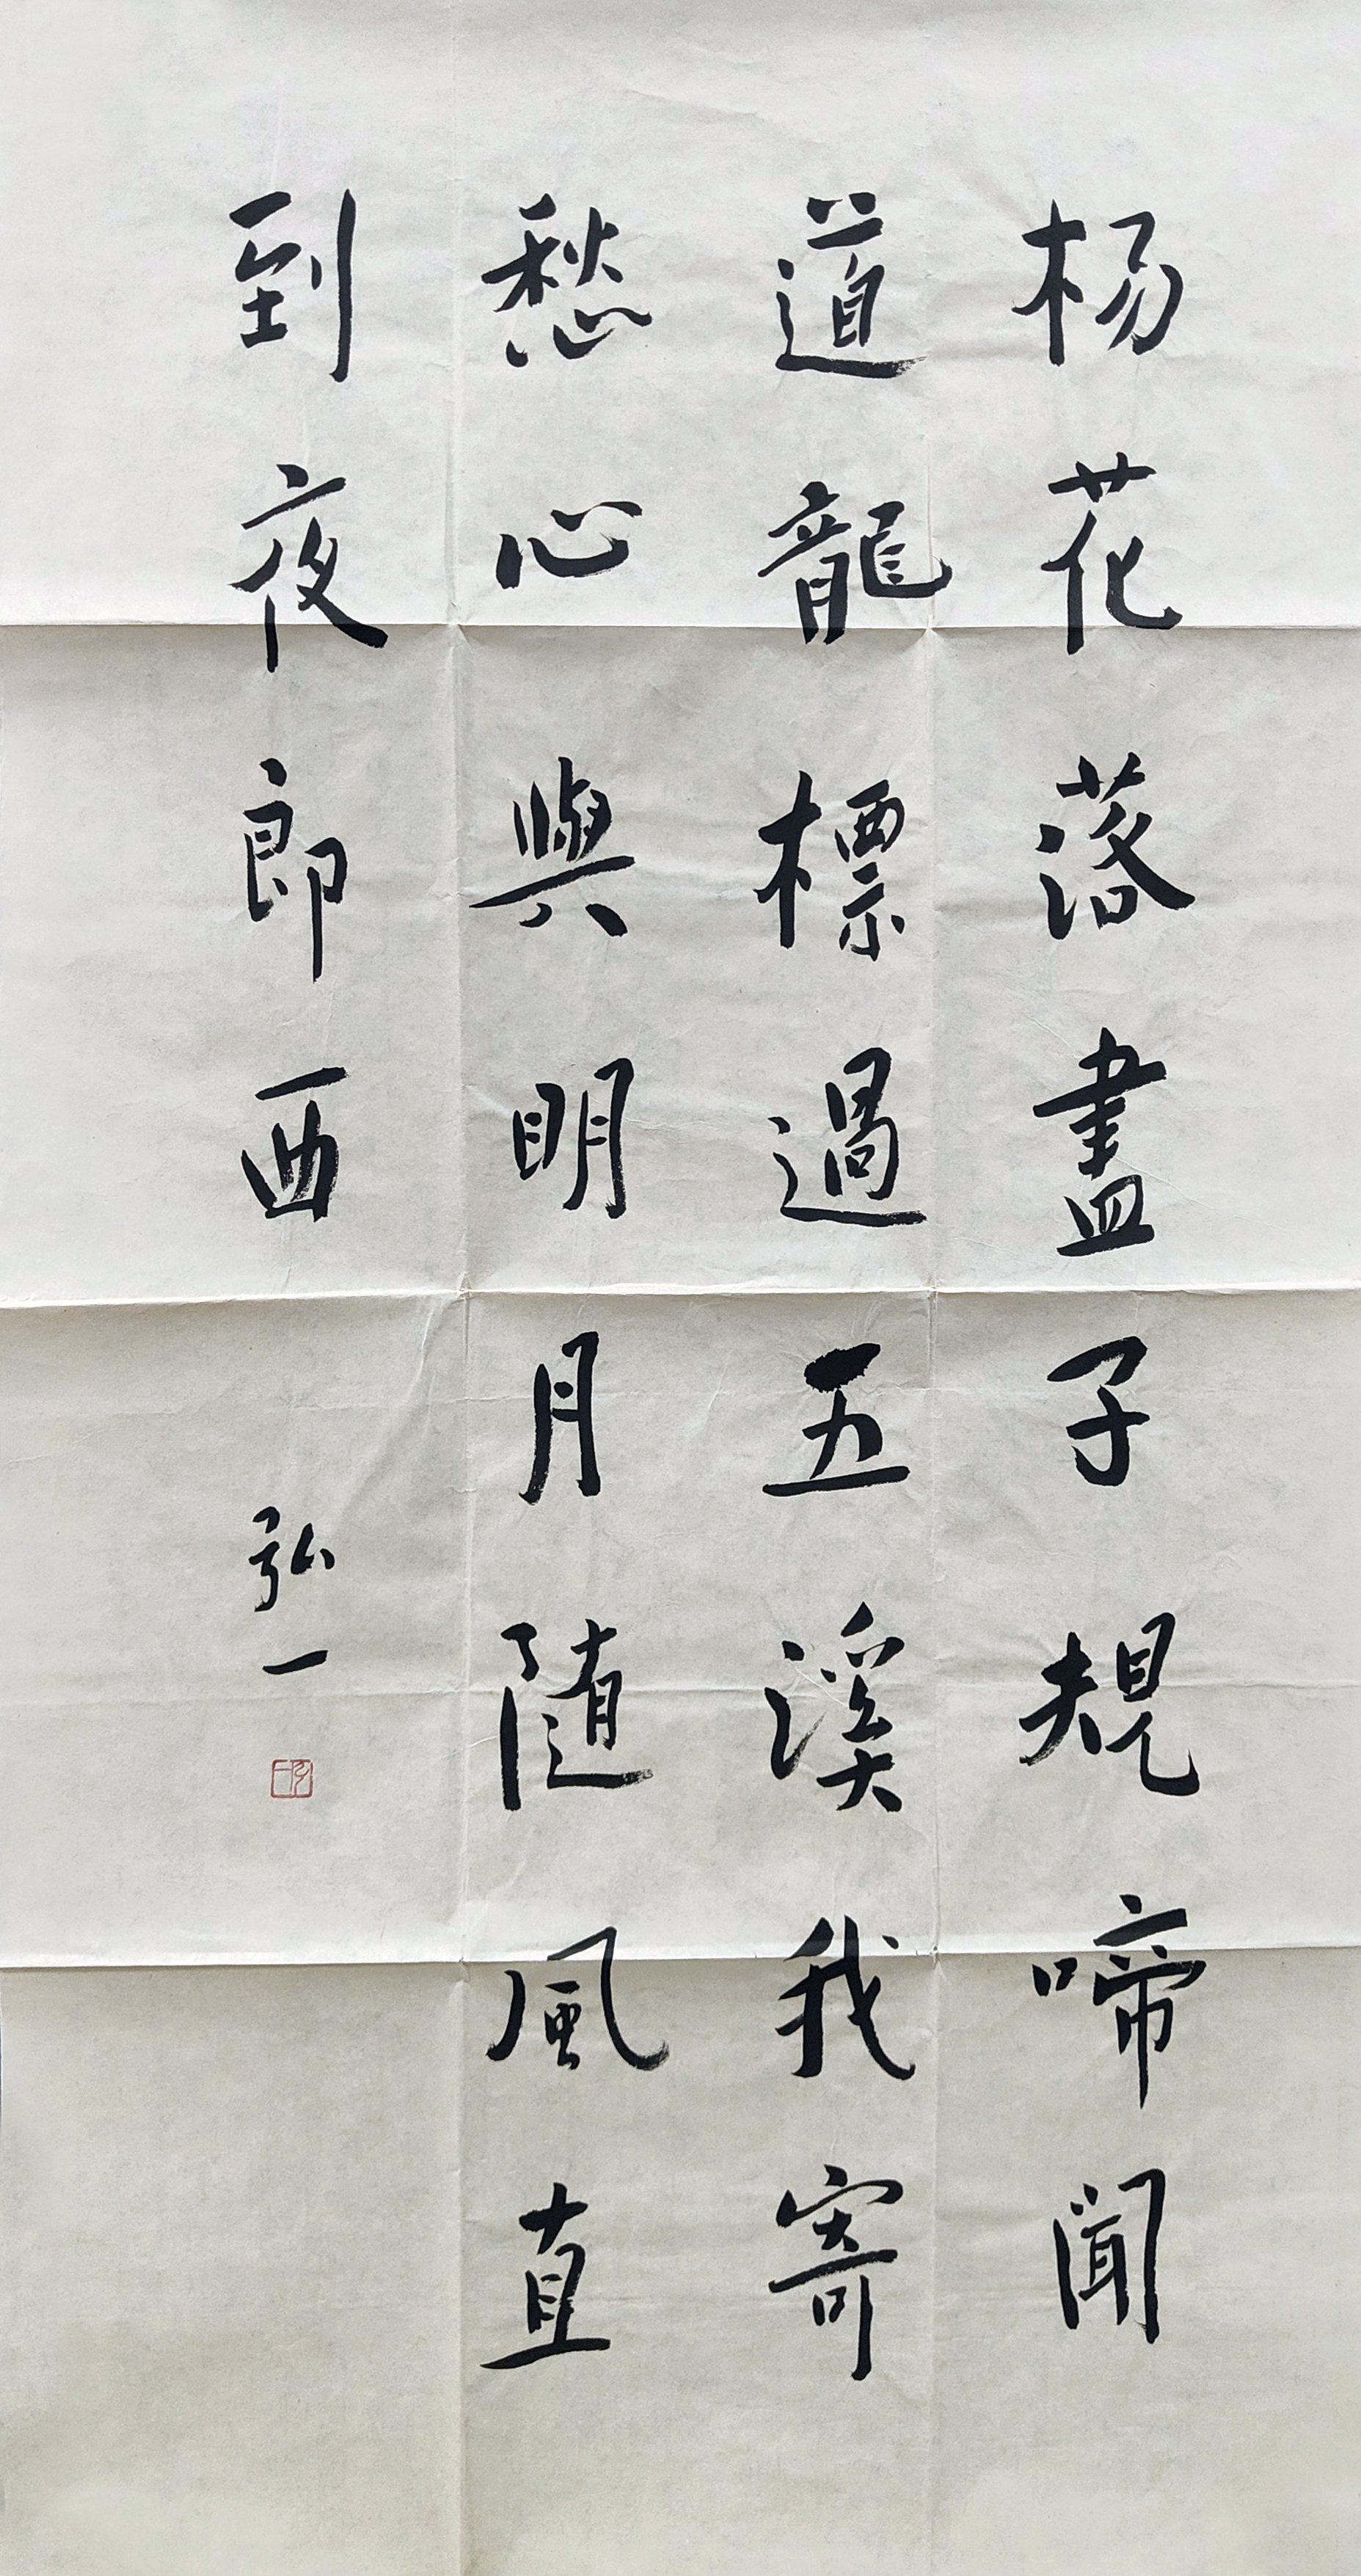 杨花落盡子規啼聞
道龍標過五溪我寄
愁心與明月随風直
到夜郎西
弘一